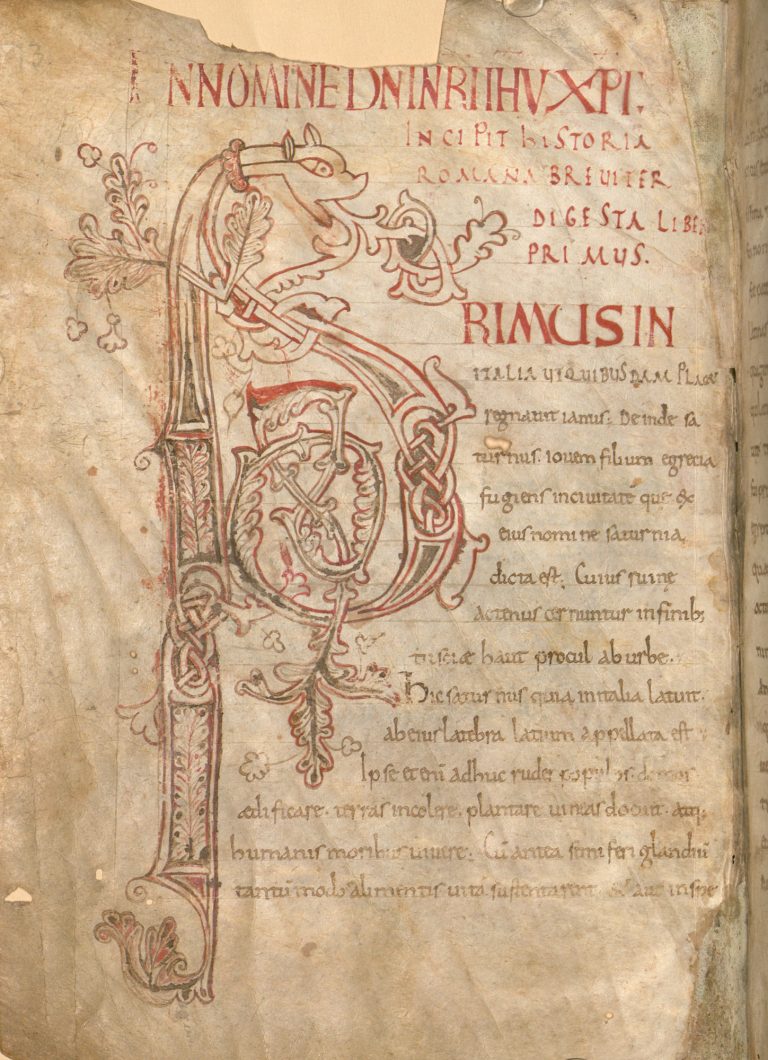 IN NOMINE DNI NRI IHU XPI;
INCIPIT hISTORIA
ROMANA BREVITER
DIGESTA LIBER
PRIMUS.
PRIMUS IN
ITALIA UT QUIBUSDAM PLACET
regnavit ianus; Deinde sa
turnus. iovem filium e grecia
fugiens in civitate que ex
eius nomine saturnia
dicta est; Cuius ruinę
actenus cernuntur in finib;
tusciæ haut procul ab urbe.
hic saturnus quia in italia latuit.
ab eius latebra latium appellata est
Ipse et enī adhuc rudes populos domos
ædificare. terras incolere. plantare vineas docuit. atq;
humanis moribus vivere. Cū antea semiferi glandiū
tantūmodo alimentis vitā sustentarent